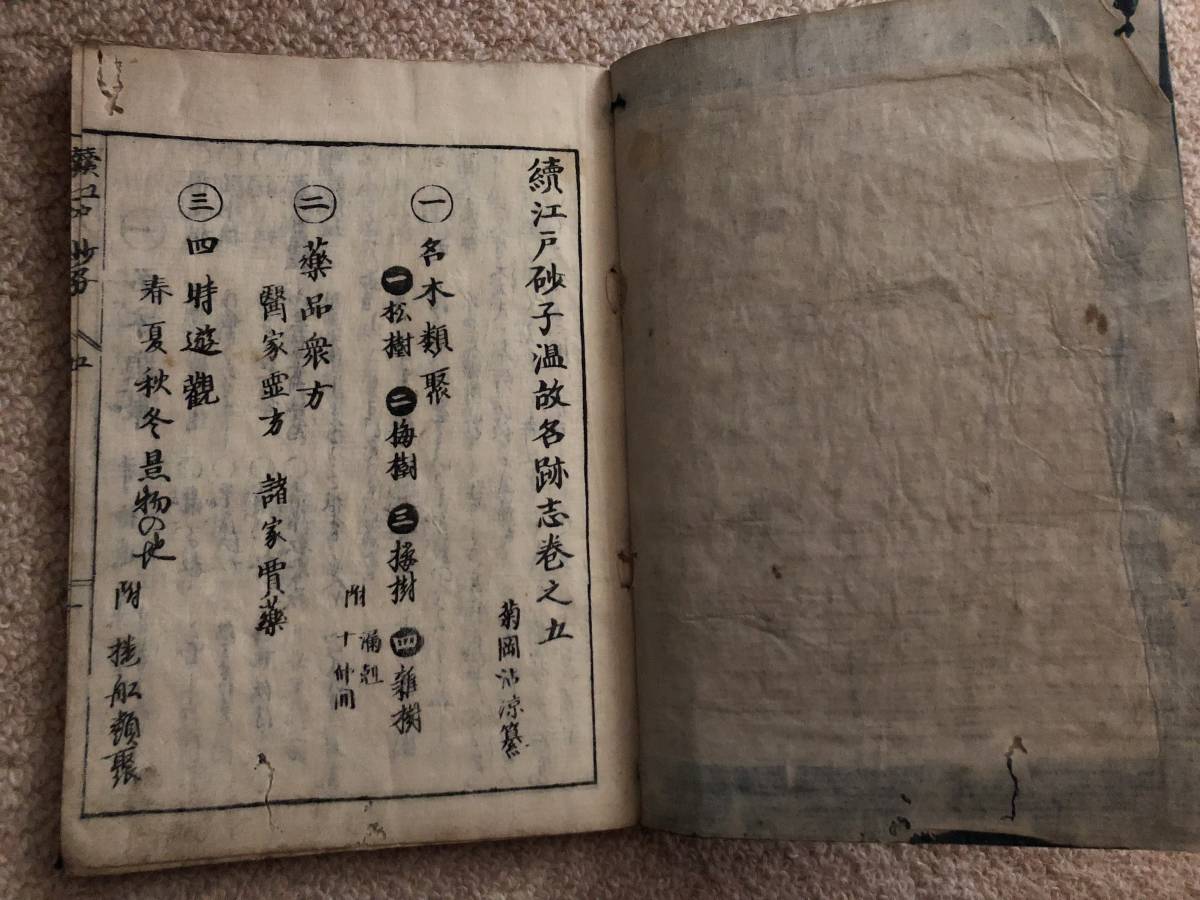 續江戸砂子温故名跡志巻之五
菊岡沾涼纂
㊀名木類聚
一松樹 二梅樹 三椽樹 四雜樹
附
十仲間
㊁藥品衆方
醫家霊方 諸家賣藥
㊂四時遊觀
春夏秋冬景物の地 附
類聚
續江戸砂子 五